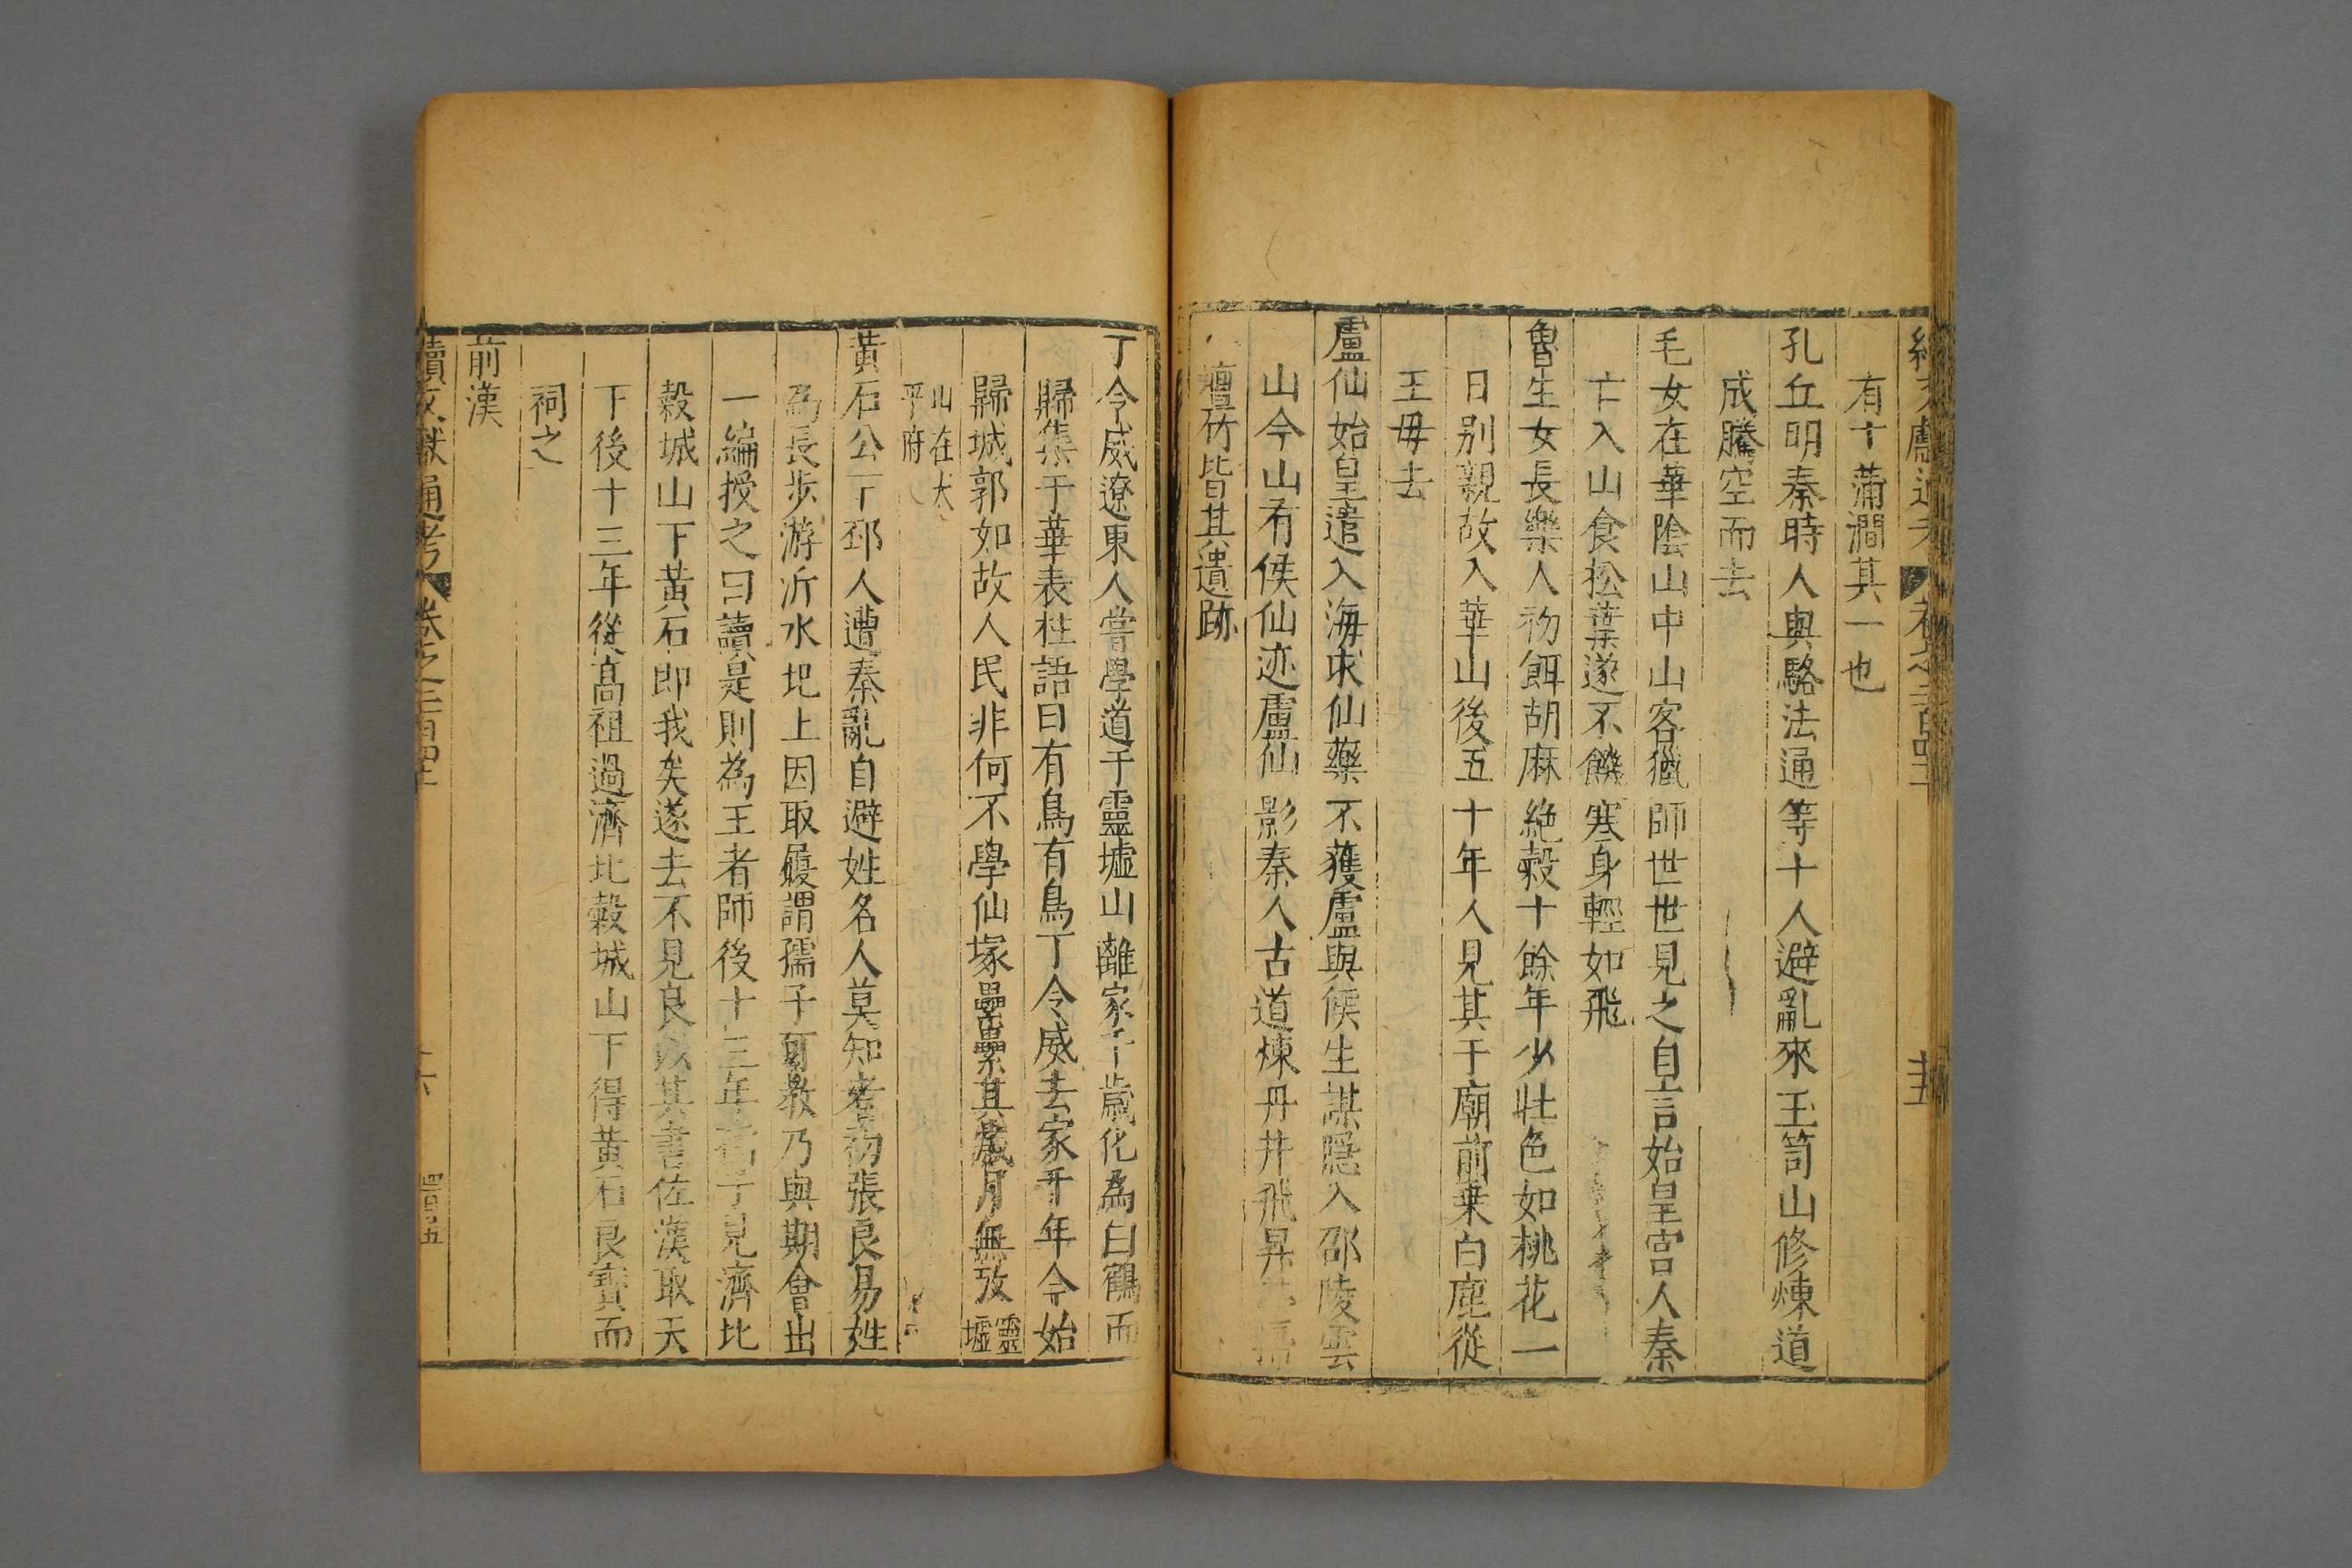 有十蒲澗其一也
孔丘明秦時人與駱法通等十人避亂來玉笥山修煉道
成騰空而去
毛女在華陰山中山客獵師世世見之自言始皇宮人秦
亡入山食松葉遂不饑寒身輕如飛
魯生女長樂人初餌胡麻絶穀十餘年少壯色如桃花一
日别親故入華山後五十年人見其于廟前乗白鹿從
王毋去
盧仙始皇遣入海求仙藥不獲盧與候生謀隱入邵陵雲
山今山有侯仙迹盧仙影秦人古道煉丹井飛昇
壇竹皆其遺跡
丁令威遼東人嘗學道于靈墟山離家千歲化為白鶴而
歸集于華表柱語曰有鳥有鳥丁令威去家千年今始
歸城郭如故人民非何不學仙塚纍纍其歲月無攷靈墟
山在太平府
黃石公下邳人遭秦亂自避姓名人莫知者初張良易姓
為長步游沂水圯上因取履謂孺子可教乃與期會出
一編授之曰讀是則為王者師後十三年孺子見濟北
穀城山下黃石即我矣遂去不見良以其書佐漢取天
下後十三年從高祖過濟北穀城山下得黃石良寳而
祠之
前漢
續文獻通考 卷之二百四十